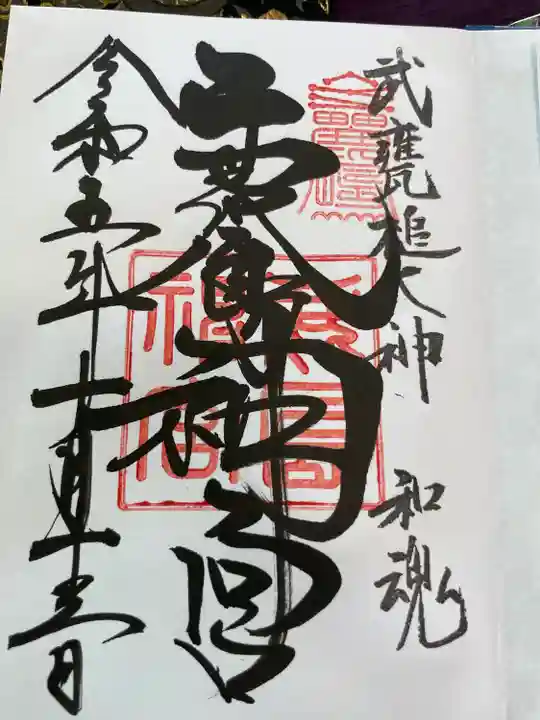 武甕槌大神 和魂
鹿島神宮
令和五年十月十日